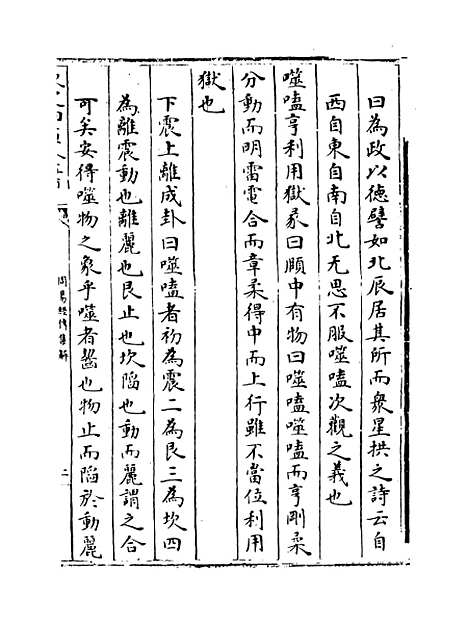 曰為政以德譬如北辰居其所而衆星拱之詩云自
西自東自南自北无思不服噬嗑次觀之義也
噬嗑亨利用獄彖曰頤中有物曰噬嗑噬嗑而亨剛柔
分動而明雷電合而章柔得中而上行雖不當位利用
獄也
下震上離成卦曰噬嗑者初為震二為艮三為坎四
為離震動也離麗也艮止也坎陷也動而麗謂之合
可矣安得噬物之象乎噬者齧也物止而陷於動麗
周易經傳集解
二